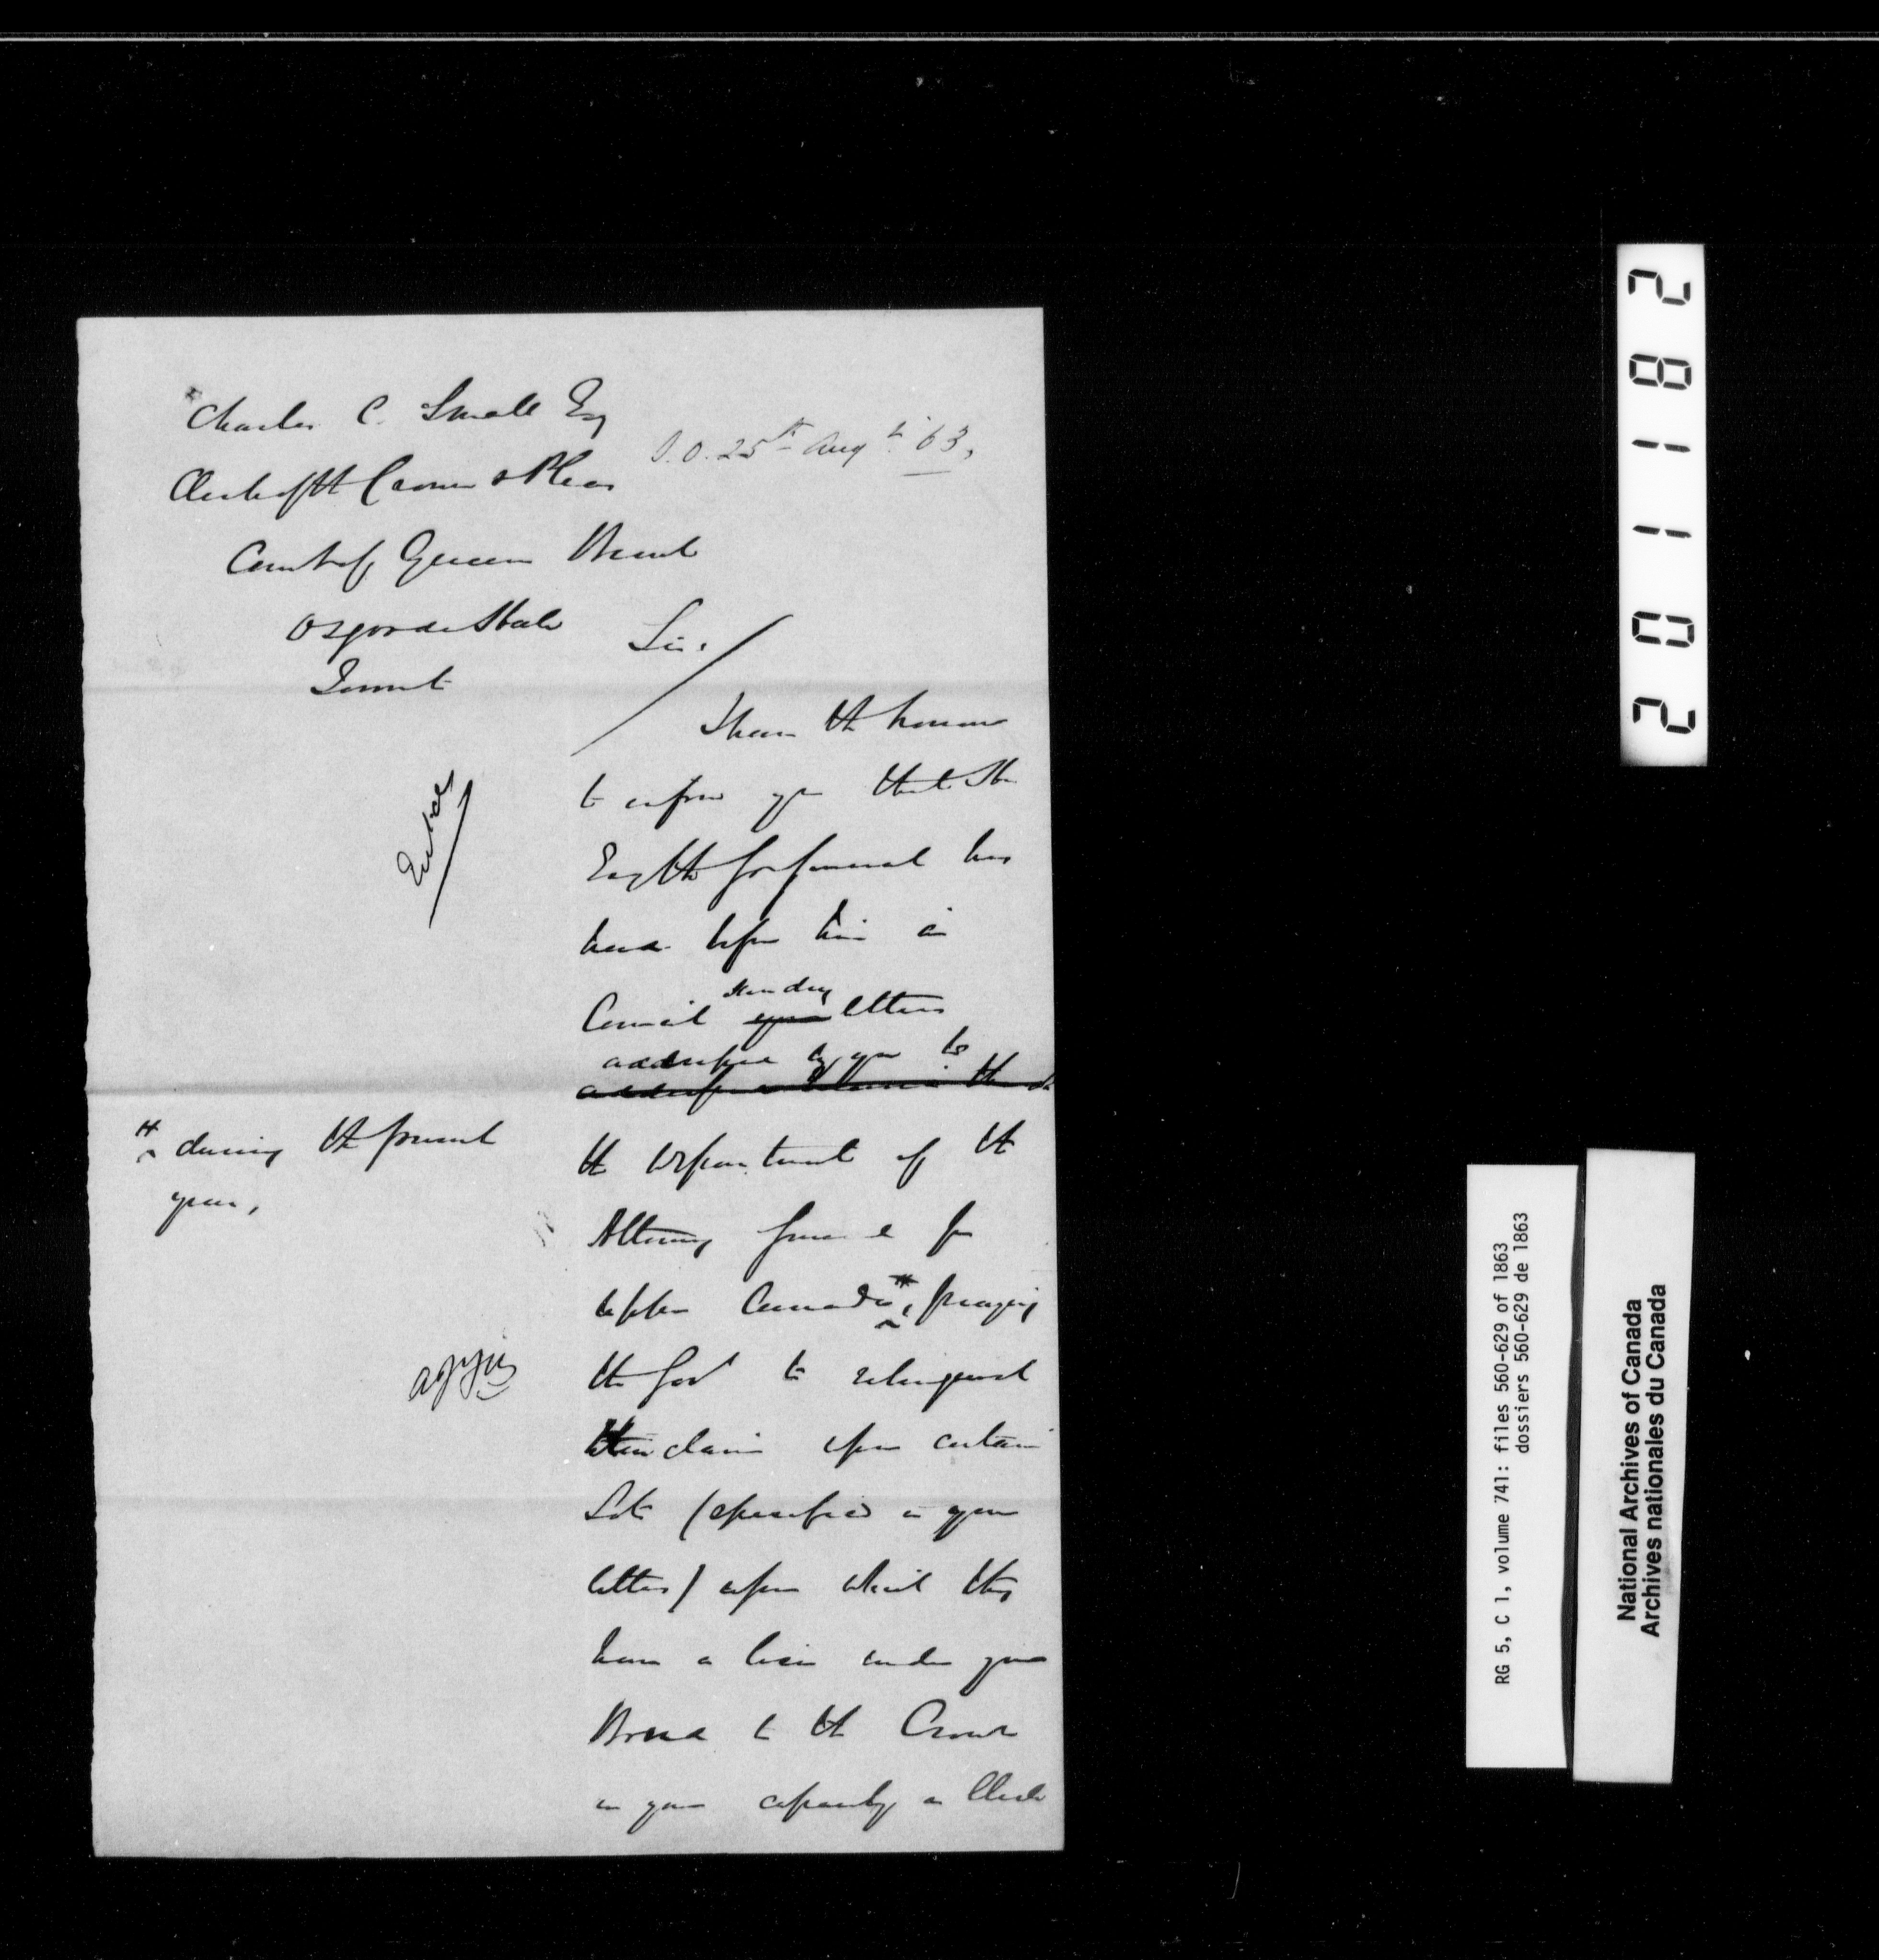 Charles C. Small Esq
S.O. 25th Augt. 63,
Clerk of the Crown & Pleas
Court of Queens Bench
Osgoode Hall
Toronto
Sir,
I have the honour
to inform you that His
Excy the Gov General has
had before him in
sundry
Council your letters
addressed by you to
the Department of the
Attorney General for
Upper Canada #, praying
# during the present
year,
the Govt to relinquish
their claim upon certain
Lots (specified in your
letters) upon which they
have a lien under your
Bond to the Crown
in your capacity as Clerk
2 0 1 1 8 2
RG 5, C 1, volume 741: files 560-629 of 1863
dossiers 560-629 de 1863
National Archives of Canada
Archives nationales du Canada